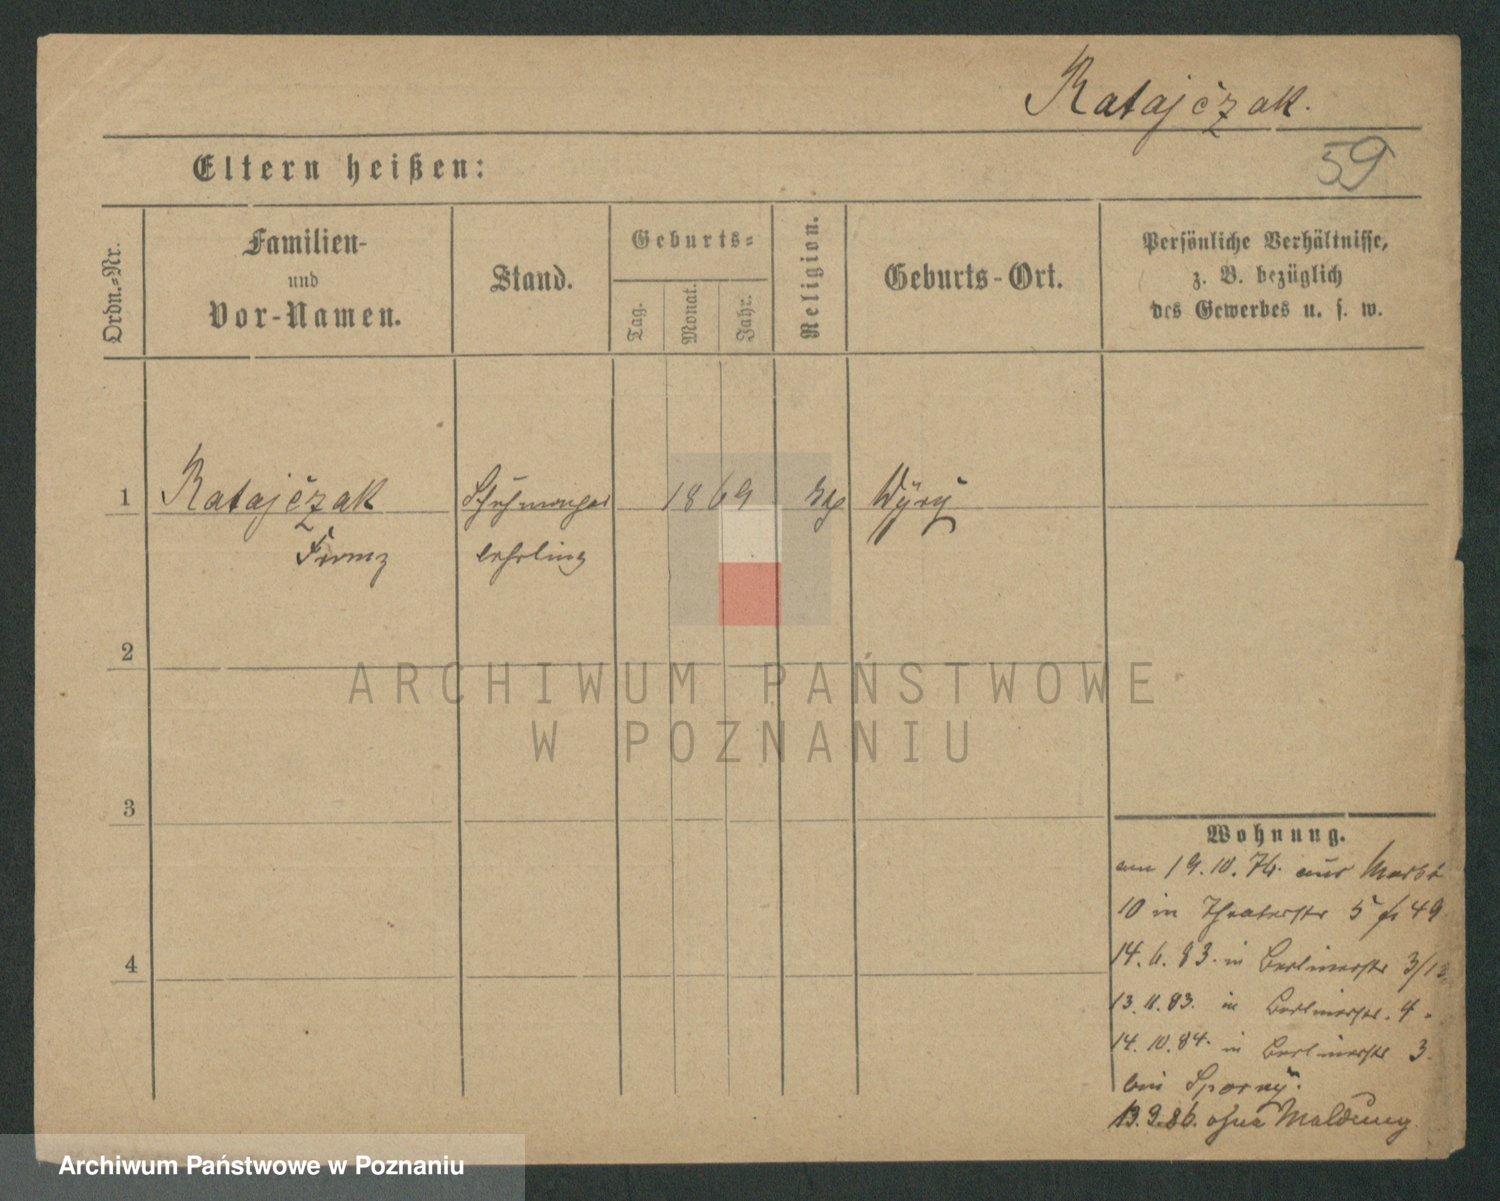 Ratajčzak.
59
Eltern heißen:
Ordn.-Nr.
Familien-
und
Vor-Namen.
Stand.
Geburts-
Tag.
Monat.
Jahr.
Religion.
Geburts-Ort.
Persönliche Verhältnisse,
z. B. bezüglich
des Gewerbes u. s. w.
1 Ratajčzak 1869
Franz lehrling
2
3
4
Wohnung.
am 19.10. aus Markt
10 in Theaterstr 5
14.6.83. in Berlinerstr 3/
13.11.83. in Berlinerstr. 4.
14.10.84. in Berlinerstr 3.
bei Sporny.
13.9.86. ohne Meldung
ARCHIWUM PAŃSTWOWE
W POZNANIU
Archiwum Państwowe w Poznaniu